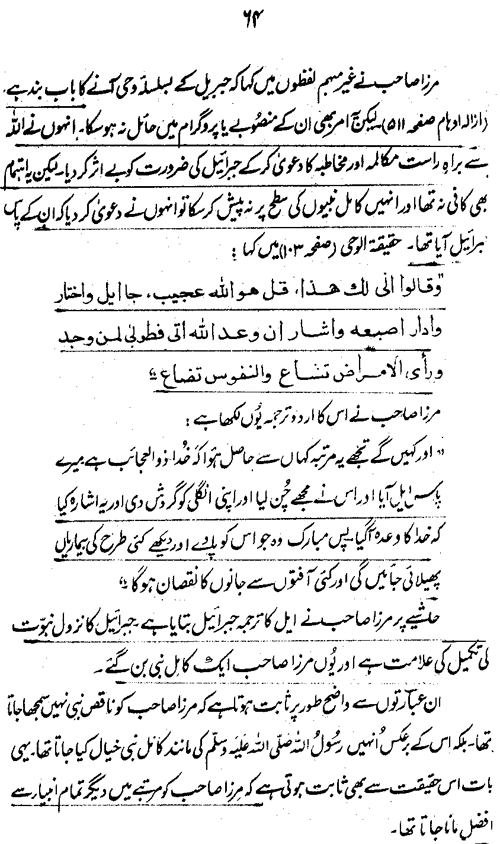 ۶۴
مرزا صاحب نے غیر مبہم لفظوں میں کہا کہ جبریل کے بسلسلۂ وحی آنے کا باب بند ہے۔
(ازالہ اوہام صفحہ ۵۱۱) لیکن یہ امر بھی ان کے منصوبے یا پروگرام میں حائل نہ ہو سکا۔ انہوں نے اللہ
سے براہِ راست مکالمہ اور مخاطبہ کا دعویٰ کر کے جبرائیل کی ضرورت کو بے اثر کر دیا۔ لیکن یہ اہتمام
بھی کافی نہ تھا اور انہیں کامل نبیوں کی سطح پر نہ پیش کر سکا تو انہوں نے دعویٰ کر دیا کہ ان کے پاس
جبرائیل آیا تھا۔ حقیقۃ الوحی (صفحہ ۱۰۳) میں کہا :
"وقالوا انی لك هذا، قل هو الله عجیب، جاء ایل واختار
وأدار اصبعه واشار ان وعد الله اتی فطوبی لمن وجد
ورأی، الامراض تشاع والنفوس تضاع"
مرزا صاحب نے اس کا اردو ترجمہ یوں لکھا ہے :
"اور کہیں گے تجھے یہ مرتبہ کہاں سے حاصل ہوا کہ خدا ذوالعجائب ہے میرے
پاس ایل آیا اور اس نے مجھے چن لیا اور اپنی انگلی کو گردش دی اور یہ اشارہ کیا
کہ خدا کا وعدہ آ گیا۔ پس مبارک وہ جو اس کو پاوے اور دیکھے کئی طرح کی بیماریاں
پھیلائی جائیں گی اور کئی آفتوں سے جانوں کا نقصان ہو گا"
حاشیے پر مرزا صاحب نے ایل کا ترجمہ جبرائیل بتایا ہے۔ جبرائیل کا نزول نبوت
کی تکمیل کی علامت ہے اور یوں مرزا صاحب ایک کامل نبی بن گئے۔
ان عبارتوں سے واضح طور پر ثابت ہوتا ہے کہ مرزا صاحب کو ناقص نبی نہیں سمجھا جاتا
تھا۔ بلکہ اس کے برعکس انہیں رسول اللہ صلی اللہ علیہ وسلم کی مانند کامل نبی خیال کیا جاتا تھا۔ یہی
بات اس حقیقت سے بھی ثابت ہوتی ہے کہ مرزا صاحب کو مرتبے میں دیگر تمام انبیاء سے
افضل مانا جاتا تھا۔